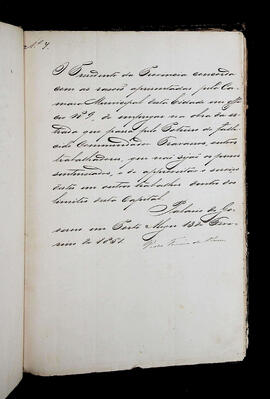 Nº 7.
O Presidente da Provincia concorda
com as rasões apresentadas pela Ca-
mara Municipal desta Cidade em off-
icio Nº 9, de empregar na obra da es-
trada que passa pelo Potreiro do falle-
cido Commendador Travassos, outros
trabalhadores, que não sejão os presos
sentenciados, e de aproveitar o serviço
destes em outros trabalhos dentro dos
limites desta Capital.
Palacio do Go-
verno em Porto Alegre 13 de Feve-
reiro de 1851